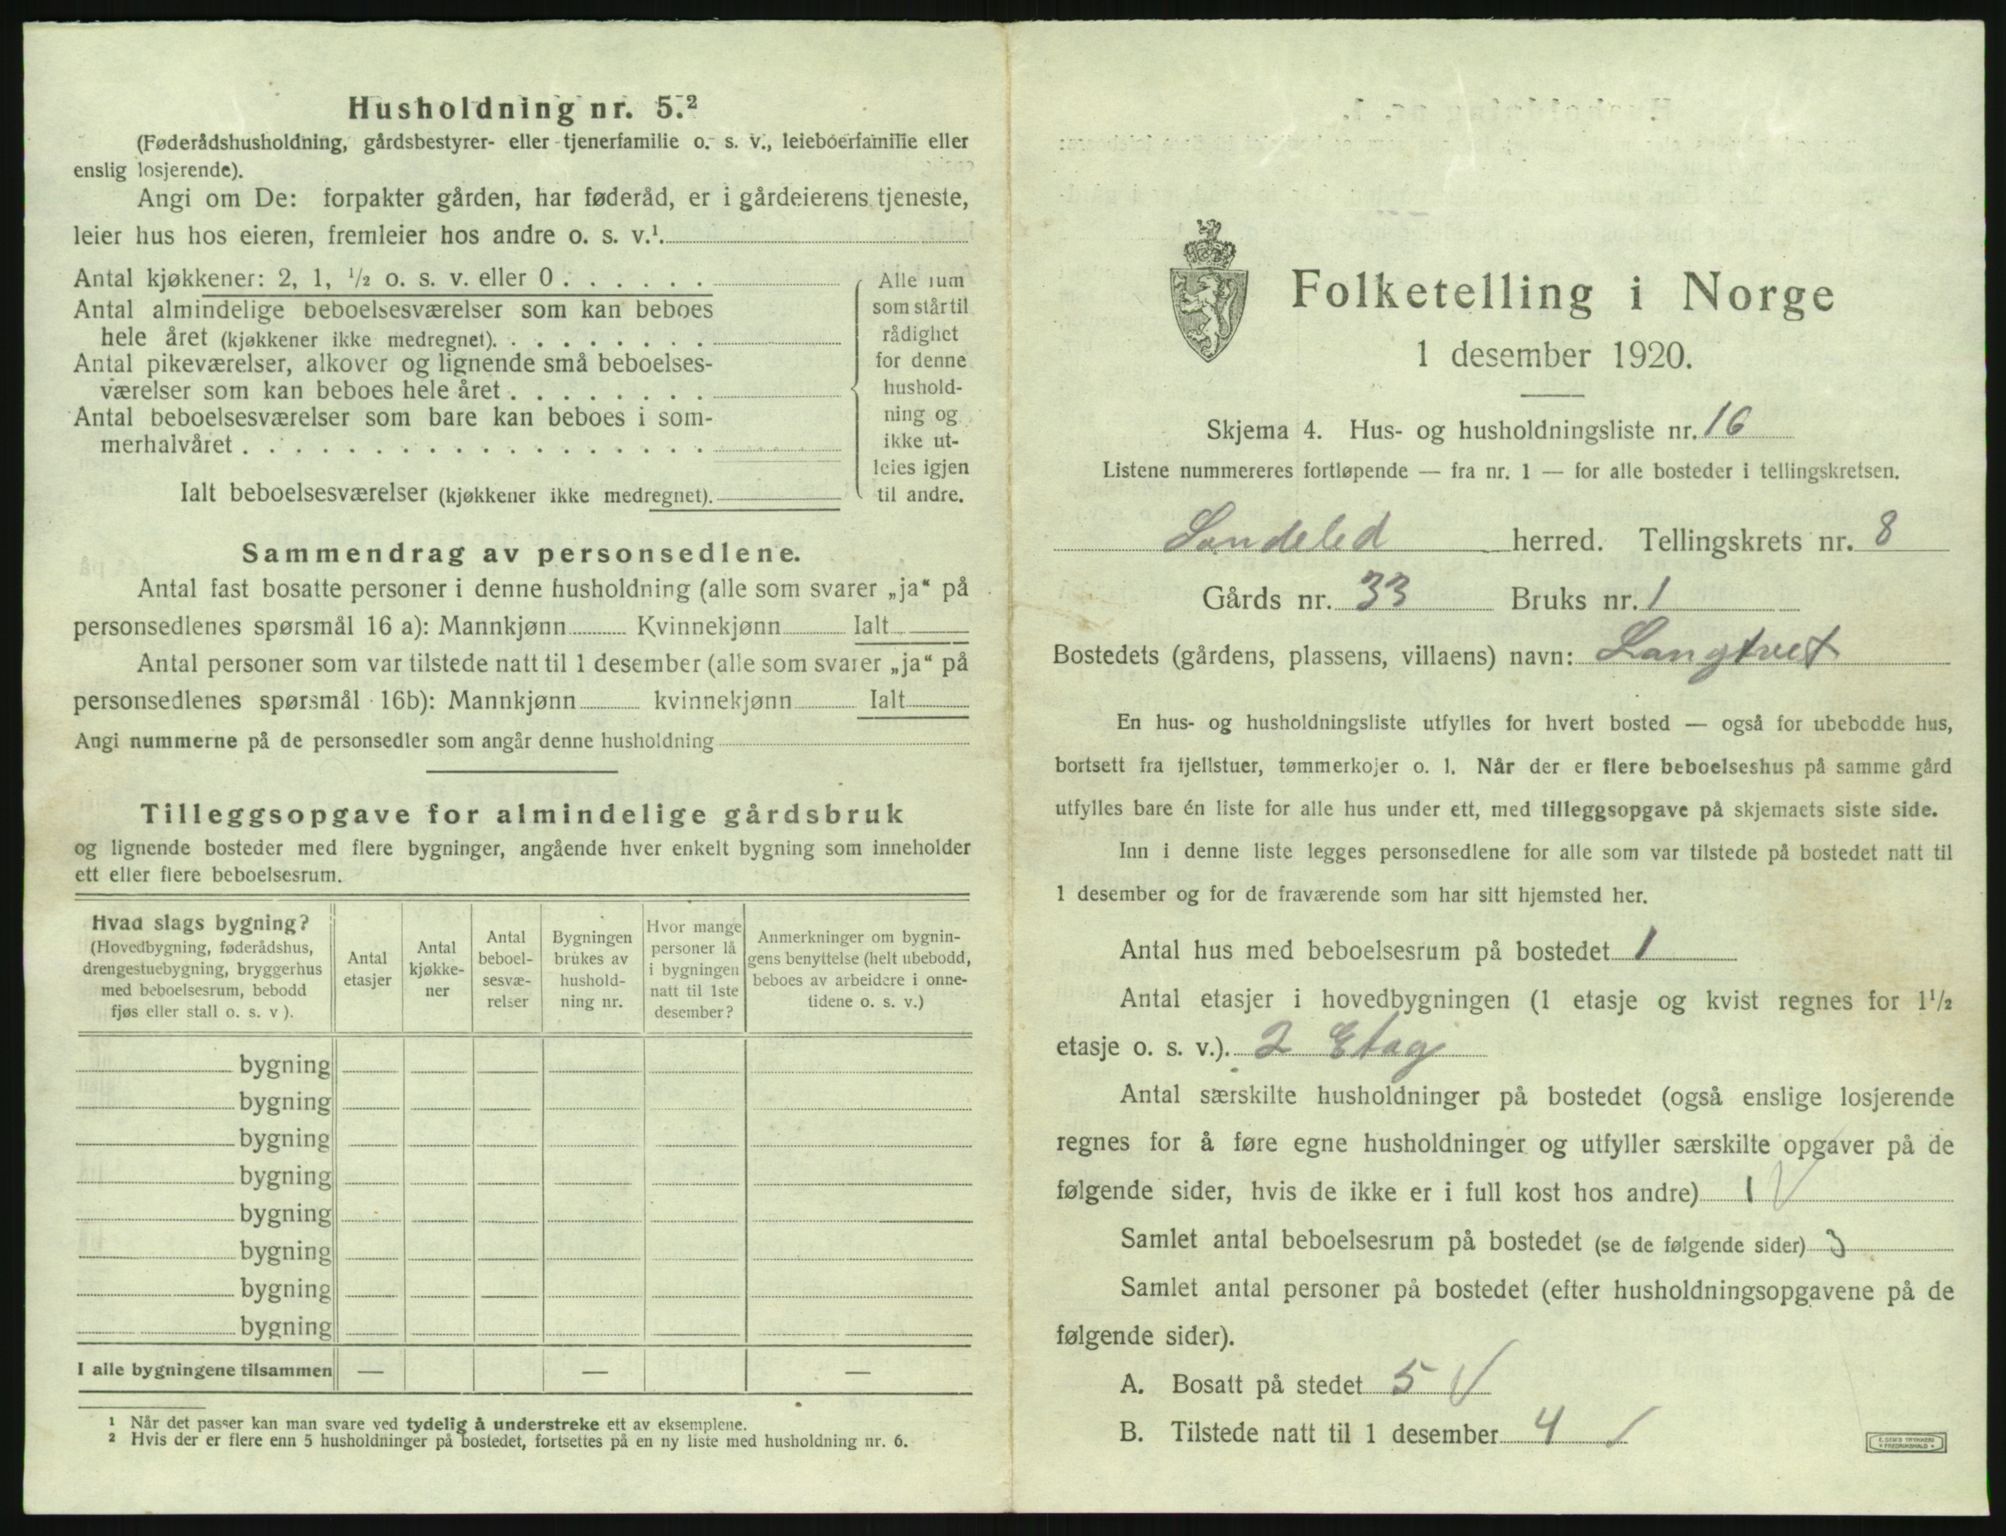 Husholdning nr. 5.²
(Føderådshusholdning, gårdsbestyrer- eller tjenerfamilie o. s. v., leieboerfamilie eller
enslig losjerende).
Angi om De: forpakter gården, har føderåd, er i gårdeierens tjeneste,
leier hus hos eieren, fremleier hos andre o. s. v.¹
Antal kjøkkener: 2, 1, ½ o. s. v. eller 0 . . . . . .
Antal almindelige beboelsesværelser som kan beboes
hele året (kjøkkener ikke medregnet). . . . . . . . .
Antal pikeværelser, alkover og lignende små beboelses-
værelser som kan beboes hele året . . . . . . . .
Antal beboelsesværelser som bare kan beboes i som-
merhalvåret . . . . . . . . . . . . . . . . . .
Ialt beboelsesværelser (kjøkkener ikke medregnet).
Alle rum
som står til
rådighet
for denne
hushold-
ning og
ikke ut-
leies igjen
til andre.
Sammendrag av personsedlene.
Antal fast bosatte personer i denne husholdning (alle som svarer „ja“ på
personsedlenes spørsmål 16 a): Mannkjønn Kvinnekjønn Ialt
Antal personer som var tilstede natt til 1 desember (alle som svarer „ja“ på
personsedlenes spørsmål 16b): Mannkjønn kvinnekjønn Ialt
Angi nummerne på de personsedler som angår denne husholdning
Tilleggsopgave for almindelige gårdsbruk
og lignende bosteder med flere bygninger, angående hver enkelt bygning som inneholder
ett eller flere beboelsesrum.
Hvad slags bygning?
(Hovedbygning, føderådshus,
drengestuebygning, bryggerhus
med beboelsesrum, bebodd
fjøs eller stall o. s. v ).
Antal
etasjer
Antal
kjøkke-
ner
Antal
beboel-
sesvæ-
relser
Bygningen
brukes av
hushold-
ning nr.
Hvor mange
personer lå
i bygningen
natt til 1ste
desember?
Anmerkninger om bygnin-
gens benyttelse (helt ubebodd,
beboes av arbeidere i onne-
tidene o. s. v.)
bygning
bygning
bygning
bygning
bygning
bygning
bygning
bygning
I alle bygningene tilsammen — — —
¹ Når det passer kan man svare ved tydelig å understreke ett av eksemplene.
² Hvis der er flere enn 5 husholdninger på bostedet, fortsettes på en ny liste med husholdning nr. 6.
Folketelling i Norge
1 desember 1920.
Skjema 4. Hus- og husholdningsliste nr. 16
Listene nummereres fortløpende — fra nr. 1 — for alle bosteder i tellingskretsen.
Søndeled herred. Tellingskrets nr. 8
Gårds nr. 33 Bruks nr. 1
Bostedets (gårdens, plassens, villaens) navn: Langtvet
En hus- og husholdningsliste utfylles for hvert bosted — også for ubebodde hus,
bortsett fra fjellstuer, tømmerkojer o. l. Når der er flere beboelseshus på samme gård
utfylles bare én liste for alle hus under ett, med tilleggsopgave på skjemaets siste side.
Inn i denne liste legges personsedlene for alle som var tilstede på bostedet natt til
1 desember og for de fraværende som har sitt hjemsted her.
Antal hus med beboelsesrum på bostedet 1
Antal etasjer i hovedbygningen (1 etasje og kvist regnes for 1½
etasje o. s. v.). 2 Etag
Antal særskilte husholdninger på bostedet (også enslige losjerende
regnes for å føre egne husholdninger og utfyller særskilte opgaver på de
følgende sider, hvis de ikke er i full kost hos andre) 1 √
Samlet antal beboelsesrum på bostedet (se de følgende sider) 3
Samlet antal personer på bostedet (efter husholdningsopgavene på de
følgende sider).
A. Bosatt på stedet 5 √
B. Tilstede natt til 1 desember 4 /